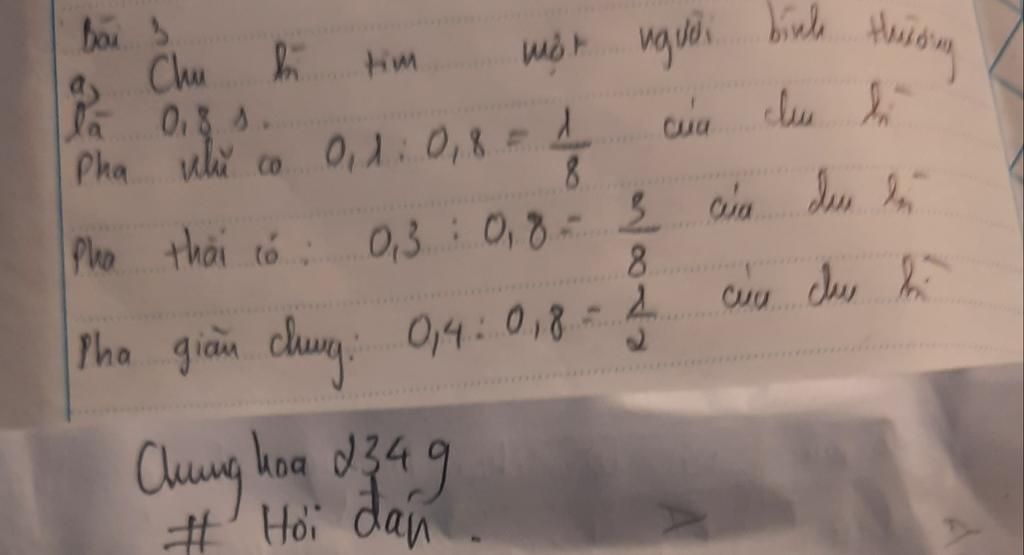 bài 3
a, Chu kì tim một người bình thường
là 0,8 s.
Pha nhĩ co 0,1 : 0,8 = 1/8 của chu kì
Pha thất có : 0,3 : 0,8 = 3/8 của chu kì
Pha giãn chung: 0,4 : 0,8 = 1/2 của chu kì
Chung hoa 234 g
# Hỏi đáp.